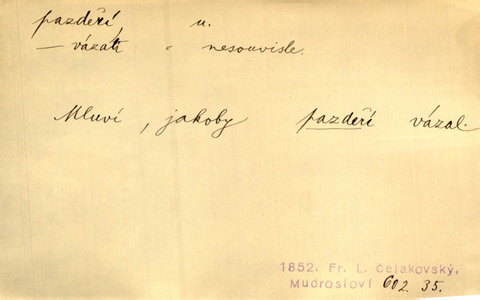 pazdeří u.
— vázati „ nesouvisle.
Mluví, jakoby pazdeří vázal.
1852. Fr. L. Čelakovský,
Mudrosloví 602. 35.